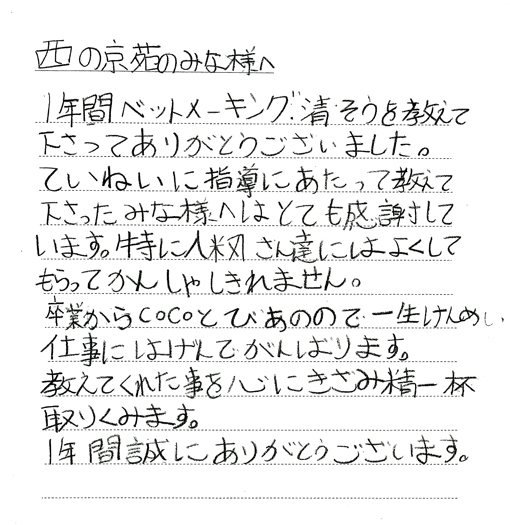 西の京苑のみな様へ
1年間ベットメーキング.清そうを教えて
下さってありがとうございました。
ていねいに指導にあたって教えて
下さったみな様へはとても感謝して
います。特に さん達にはよくして
もらってかんしゃしきれません。
卒業からCOCOとぴあのので一生けんめい
仕事にはげんでがんばります。
教えてくれた事を心にきざみ精一杯
取りくみます。
1年間誠にありがとうございます。